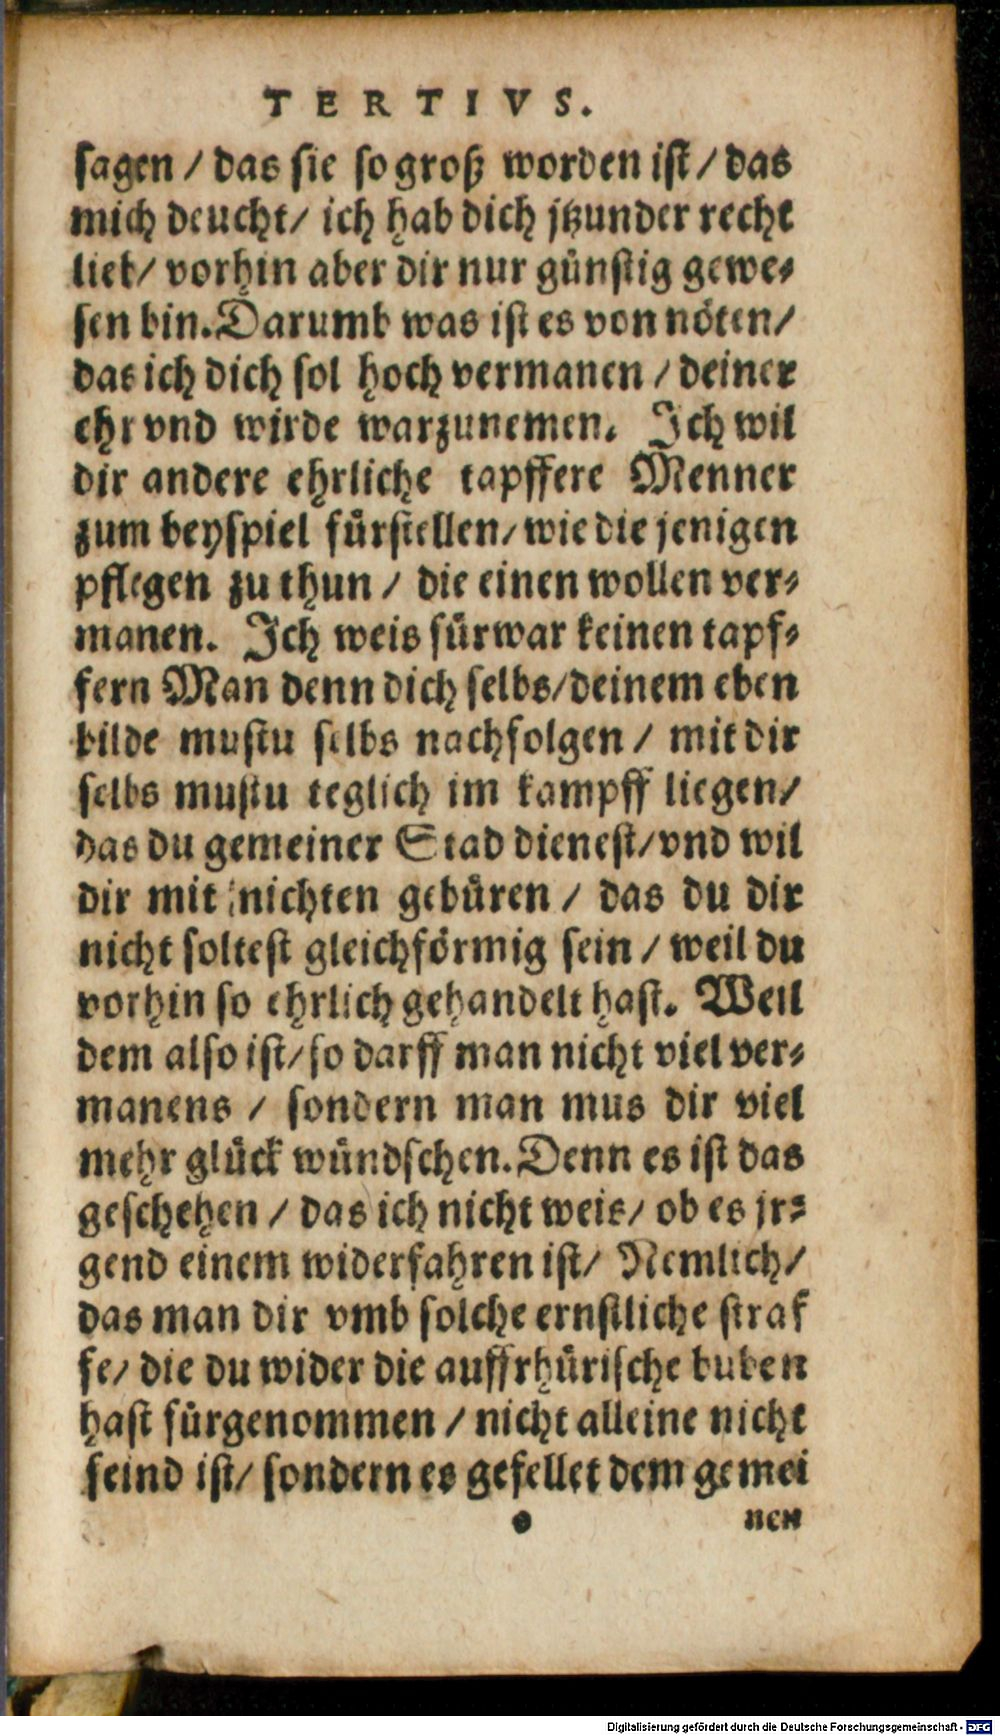 TERTIVS.
sagen / das sie so groß worden ist / das
mich deucht / ich hab dich jtzunder recht
lieb / vorhin aber dir nur günstig gewe⸗
sen bin. Darumb was ist es von nöten /
das ich dich sol hoch vermanen / deiner
ehr vnd wirde warzunemen. Ich wil
dir andere ehrliche tapffere Menner
zum beyspiel fürstellen / wie die jenigen
pflegen zu thun / die einen wollen ver⸗
manen. Ich weis fürwar keinen tapf⸗
fern Man denn dich selbs / deinem eben
bilde mustu selbs nachfolgen / mit dir
selbs mustu teglich im kampff liegen /
das du gemeiner Stad dienest / vnd wil
dir mit nichten gebüren / das du dir
nicht soltest gleichförmig sein / weil du
vorhin so ehrlich gehandelt hast. Weil
dem also ist / so darff man nicht viel ver⸗
manens / sondern man mus dir viel
mehr glück wündschen. Denn es ist das
geschehen / das ich nicht weis / ob es jr⸗
gend einem widerfahren ist / Nemlich /
das man dir vmb solche ernstliche straf
fe / die du wider die auffrhürische buben
hast fürgenommen / nicht alleine nicht
feind ist / sondern es gefellet dem gemei
nen
Digitalisierung gefördert durch die Deutsche Forschungsgemeinschaft - DFG